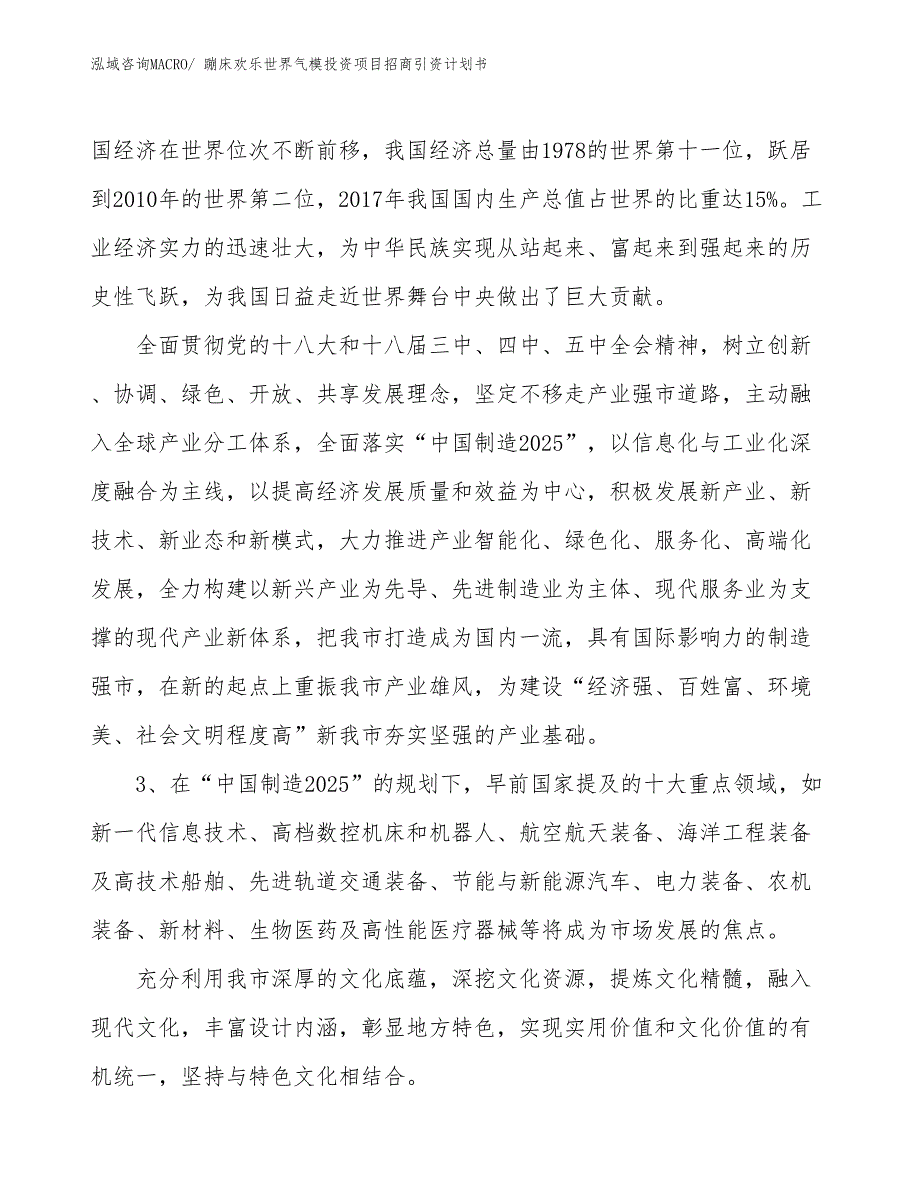 泓域咨询MACRO/ 蹦床欢乐世界气模投资项目招商引资计划书
国经济在世界位次不断前移，我国经济总量由1978的世界第十一位，跃居
到2010年的世界第二位，2017年我国国内生产总值占世界的比重达15%。工
业经济实力的迅速壮大，为中华民族实现从站起来、富起来到强起来的历
史性飞跃，为我国日益走近世界舞台中央做出了巨大贡献。
全面贯彻党的十八大和十八届三中、四中、五中全会精神，树立创新
、协调、绿色、开放、共享发展理念，坚定不移走产业强市道路，主动融
入全球产业分工体系，全面落实“中国制造2025”，以信息化与工业化深
度融合为主线，以提高经济发展质量和效益为中心，积极发展新产业、新
技术、新业态和新模式，大力推进产业智能化、绿色化、服务化、高端化
发展，全力构建以新兴产业为先导、先进制造业为主体、现代服务业为支
撑的现代产业新体系，把我市打造成为国内一流，具有国际影响力的制造
强市，在新的起点上重振我市产业雄风，为建设“经济强、百姓富、环境
美、社会文明程度高”新我市夯实坚强的产业基础。
3、在“中国制造2025”的规划下，早前国家提及的十大重点领域，如
新一代信息技术、高档数控机床和机器人、航空航天装备、海洋工程装备
及高技术船舶、先进轨道交通装备、节能与新能源汽车、电力装备、农机
装备、新材料、生物医药及高性能医疗器械等将成为市场发展的焦点。
充分利用我市深厚的文化底蕴，深挖文化资源，提炼文化精髓，融入
现代文化，丰富设计内涵，彰显地方特色，实现实用价值和文化价值的有
机统一，坚持与特色文化相结合。